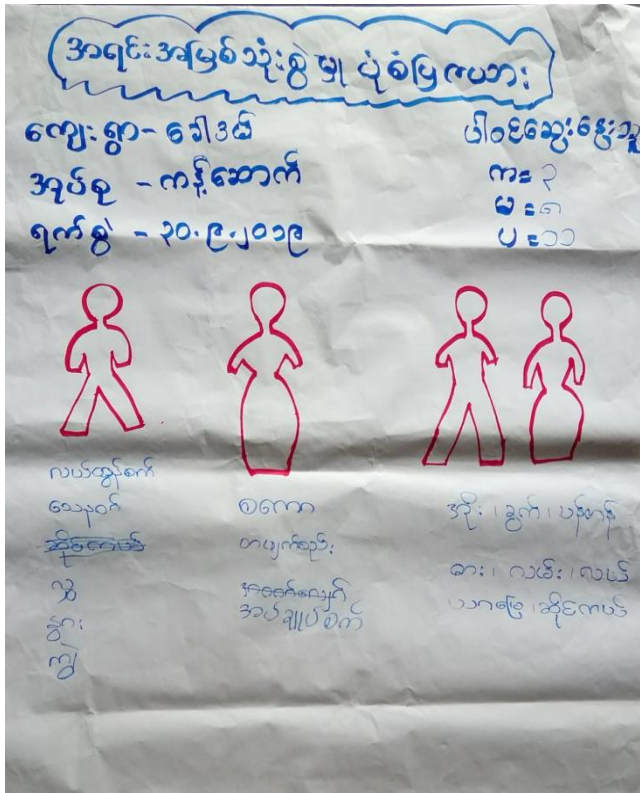 အရင်းအမြစ်သုံးစွဲမှု ပုံစံပြဇယား
ကျေးရွာ - ခေါဒယ်
အုပ်စု - ကန့်ဆောက်
ရက်စွဲ - ၃၀.၉.၂၀၁၉
ပါဝင်ဆွေးနွေးသူ
ကး ၃
မ း ၈
ပ း ၁၁
လယ်ထွန်စက်
သေနတ်
လှေ
နွား
ကျွဲ
စကော
တံမျက်စည်း
အပ်ချုပ်စက်
အိုး ၊ ခွက် ၊ ပန်းကန်
ဓား ၊ လယ်
ယာမြေ ၊ ဆိုင်ကယ်